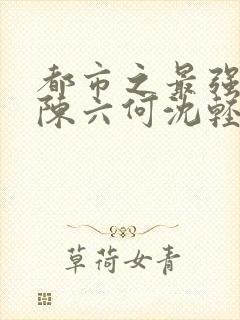 都市之最强
陈六何沈轻
草荷女青